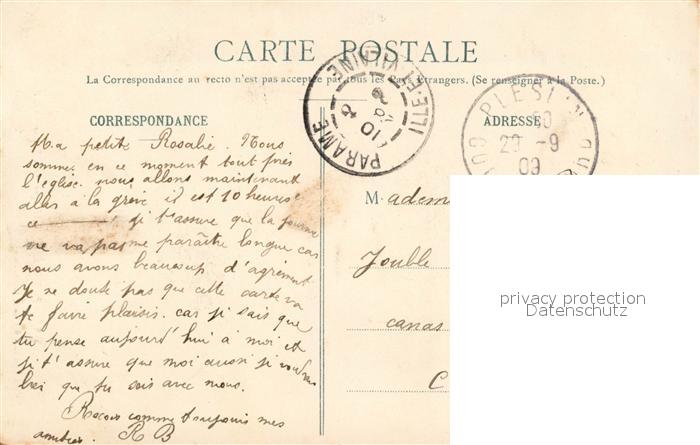 CARTE POSTALE
La Correspondance au recto n'est pas acceptée par tous les Pays Étrangers. (Se renseigner à la Poste.)
CORRESPONDANCE
ADRESSE
PARAMÉ
ILLE-ET-VILAINE
PLESI
29 -9
09
Ma petite Rosalie. Nous
sommes en ce moment tout près
l'église nous allons maintenant
aller à la grève il est 10 heures
ce je t'assure que la journée
ne va pas me paraître longue car
nous avons beaucoup d'agrément
Je ne doute pas que cette carte va
te faire plaisir. car je sais que
tu pense aujourd'hui à moi et
je t'assure que moi aussi je voudrais
bien que tu sois avec nous.
Recois comme toujours mes
amitiés. R B
Madem
Jouble
canas
C
privacy protection
Datenschutz